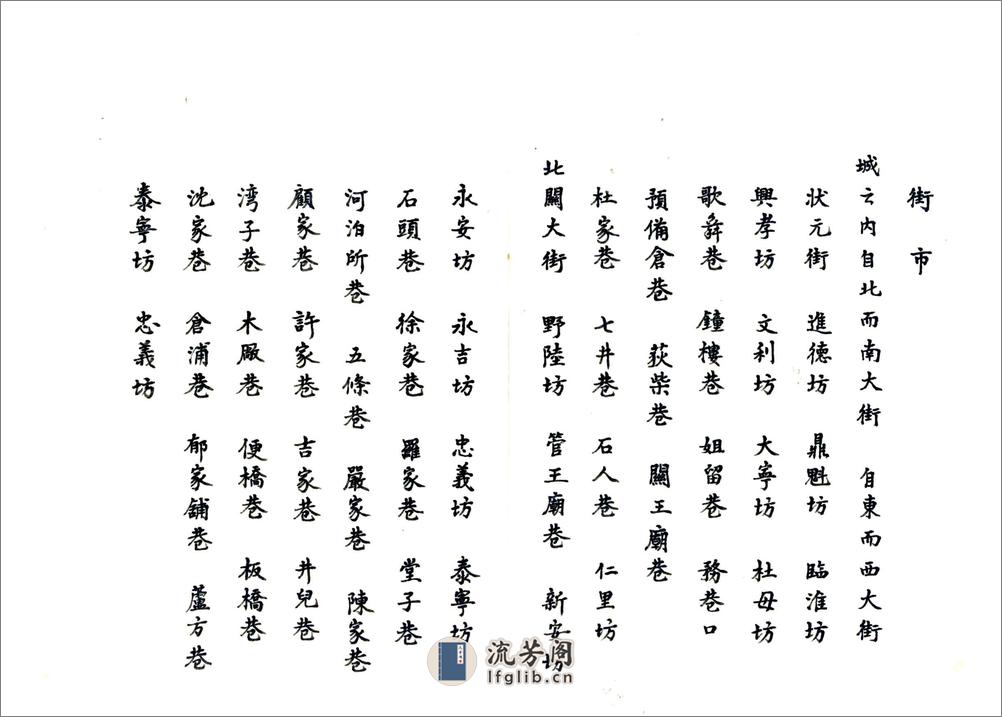 街市
城云内自北而南大街 自東而西大街
狀元街 進德坊 鼎魁坊 臨淮坊
興孝坊 文利坊 大寧坊 杜母坊
歌舜巷 鐘樓巷 姐留巷 務巷口
預備倉巷 荻柴巷 關王廟巷
杜家巷 七井巷 石人巷 仁里坊
北關大街 野陸坊 管王廟巷 新安坊
永安坊 永吉坊 忠義坊 泰寧坊
石頭巷 徐家巷 羅家巷 堂子巷
河泊所巷 五條巷 嚴家巷 陳家巷
顧家巷 許家巷 吉家巷 井兒巷
湾子巷 木厰巷 便橋巷 板橋巷
沈家巷 倉浦巷 郁家舖巷 蘆方巷
泰寧坊 忠義坊
流芳阁
lfglib.cn